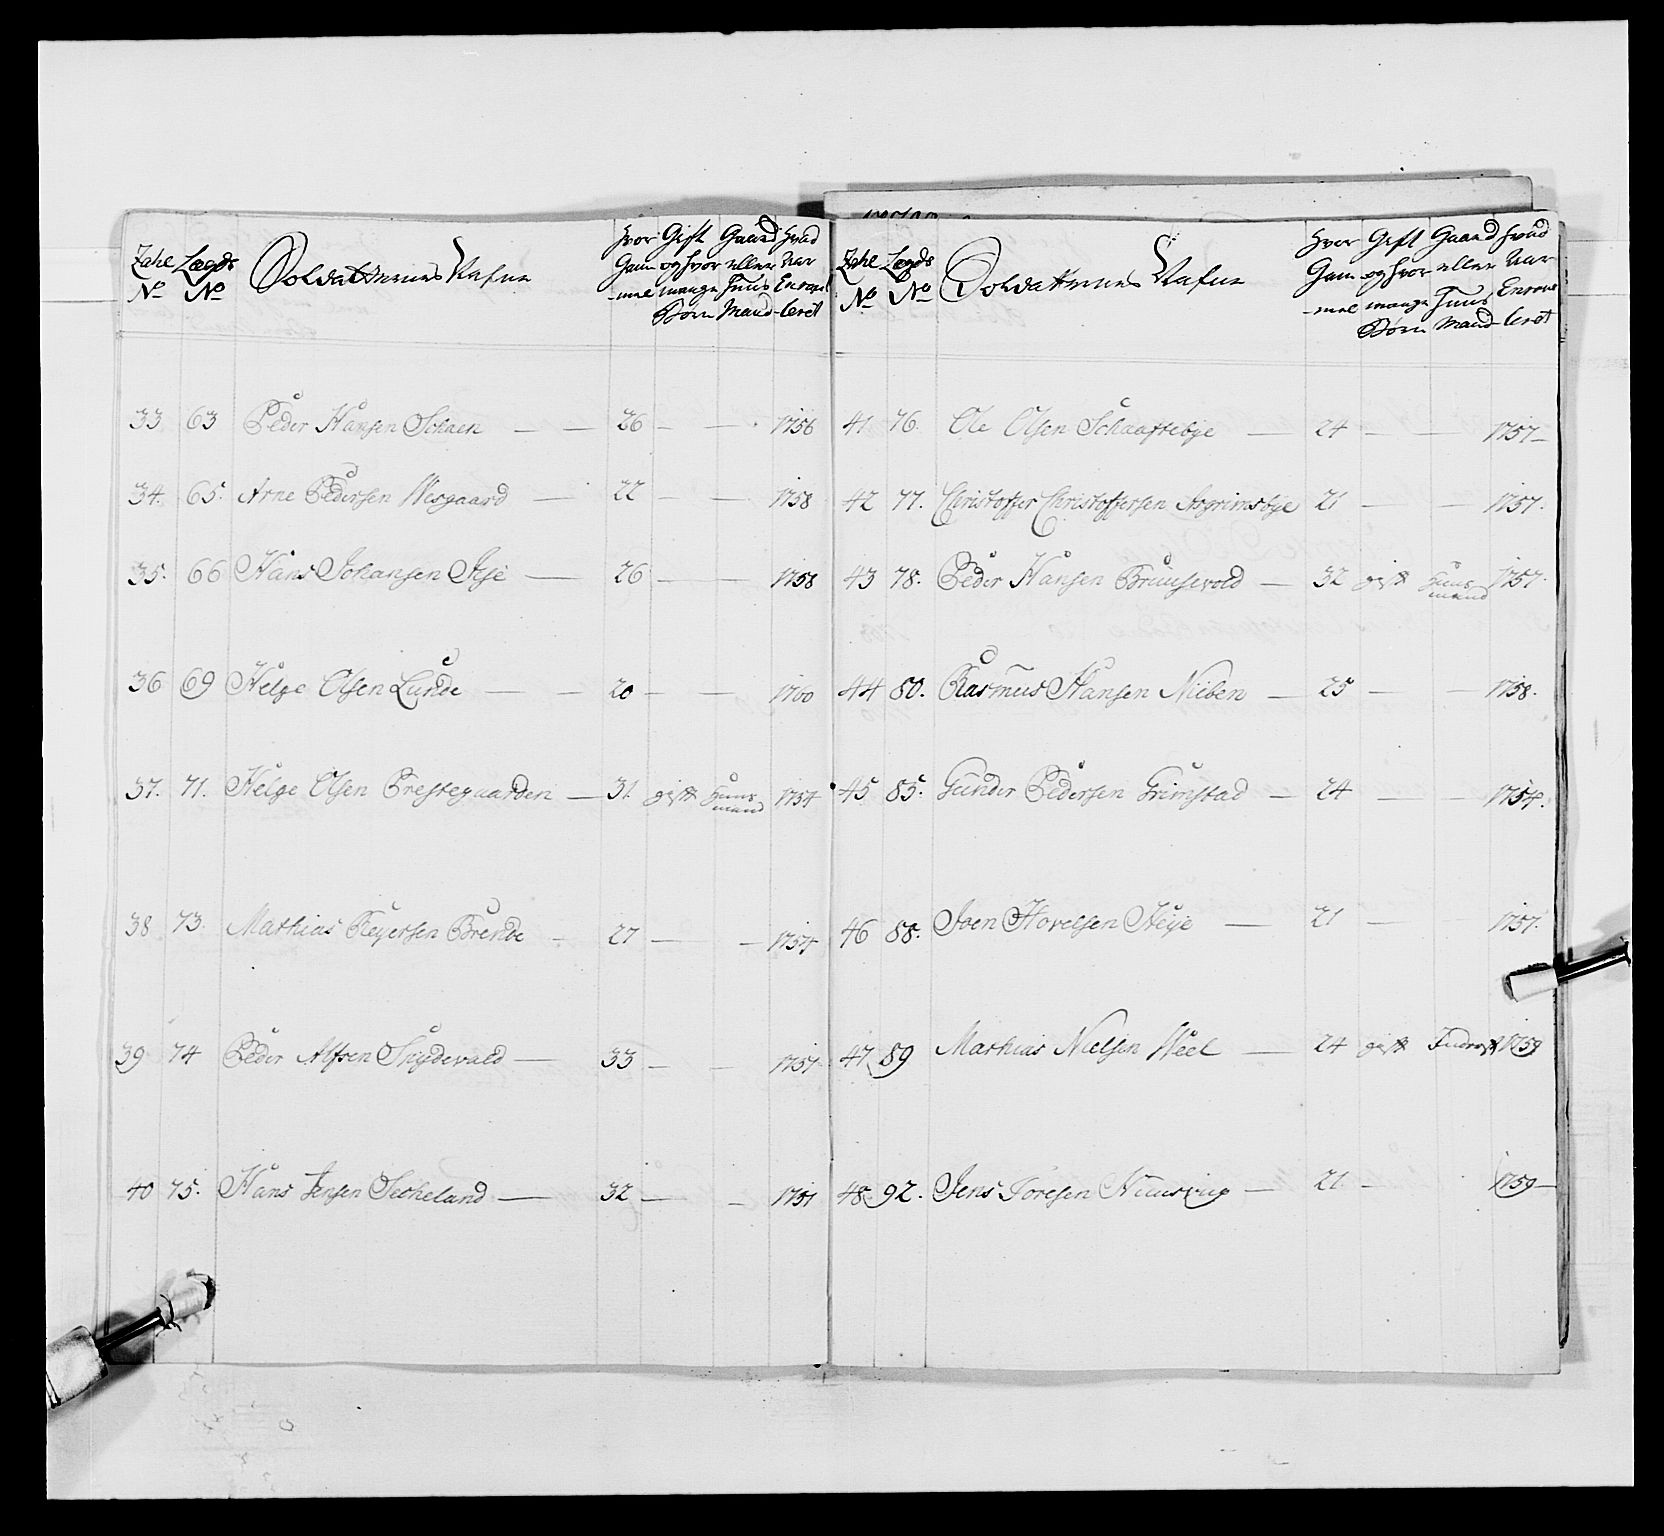 Zahl Legds Soldatternes Nafne Hvor Gift Gaard Hvad
No No Gam og hvor eller Aar
-mel mange Huus Enroul
Børn Mand -leret
33 63 Peder Hansen Schaen — — 26 — — 1756
34. 65. Arne Pedersen Wisgaard — 22 — — 1758
35. 66 Hans Johansen Isje — 26 — — 1758
36 69 Helge Olsen Lunde — — 20 — — 1760
37. 71. Helge Olsen Prestegaarden — 31. gift Huus mand 1754
38 73. Mathias Reyersen Brende — 27 — — 1754
39 74 Peder Alfsen Sugdevald — 33 — — 1757
40 75. Hans Jensen Setheland — 32 — — 1751
Zahl Legds Soldatternes Nafne Hvor Gift Gaard Hvad
No No Gam og hvor eller Aar
-mel mange Huus Enrou
Børn Mand -leret
41 76. Ole Olsen Schaaftebye — 24 — — 1757—
42 77. Christoffer Christoffersen Asgrimsbye 21 — — 1757.
43 78. Peder Hansen Bruusevold — 32 gift Huus mand 1757.
44 80. Rasmus Hansen Nieben — 25 — — 1758.
45 85. Gunder Pedersen Grimstad — 24 — — 1754.
46 88. Joen Hovelsen Heye — 21 — 1757.
47 89 Mathias Nielsen Weel — 24 gift Inderst 1759
48 92. Jens Toresen — 21 — 1759—